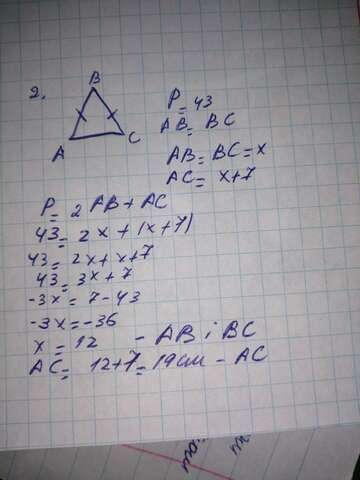 2.
B
A
C
P = 43
AB = BC
AB = BC = x
AC = x+7
P = 2 AB + AC
43 = 2x + (x+7)
43 = 2x + x + 7
43 = 3x + 7
-3x = 7 - 43
-3x = -36
x = 12 - AB і BC
AC = 12+7 = 19см - AC